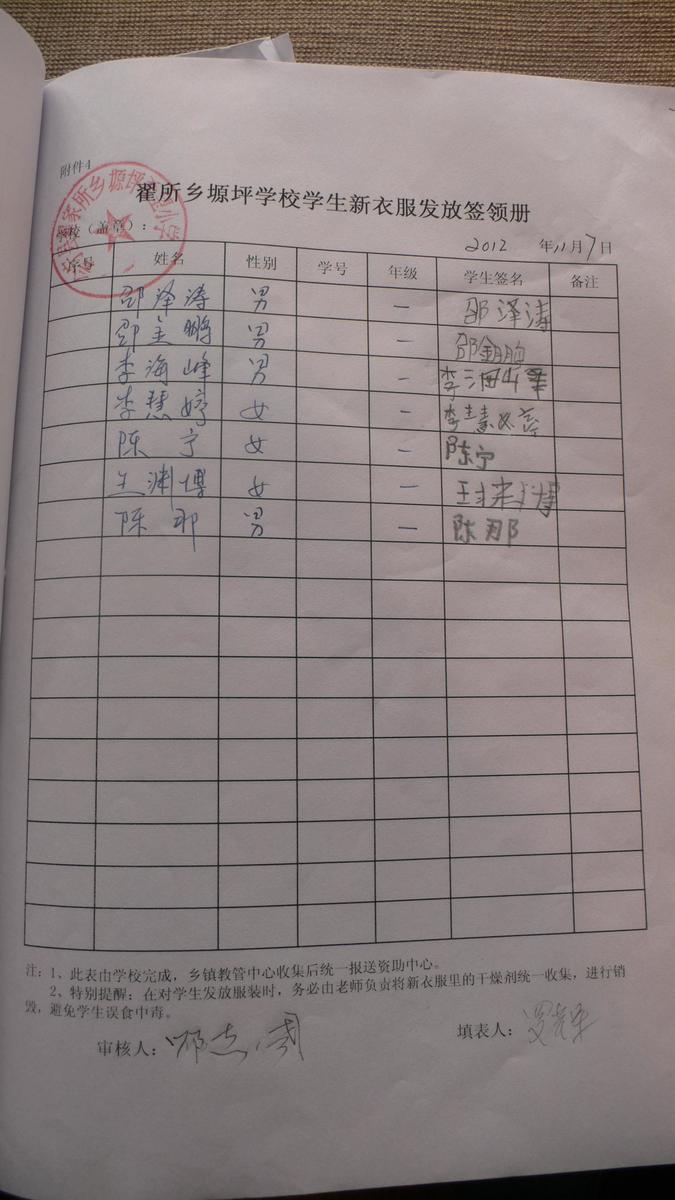 附件4
翟所乡塬坪学校学生新衣服发放签领册
学校（盖章）：
2012 年11月7日
序号 姓名 性别 学号 年级 学生签名 备注
邵泽涛 男 一 邵泽涛
邵 鹏 男 一 邵
李海峰 男 一 李海峰
李慧婷 女 一 李慧婷
陈宁 女 一 陈宁
王渊博 女 一 王渊博
陈那 男 一 陈那
注：1、此表由学校完成，乡镇教管中心收集后统一报送资助中心。
2、特别提醒：在对学生发放服装时，务必由老师负责将新衣服里的干燥剂统一收集，进行销
毁，避免学生误食中毒。
审核人： 填表人：